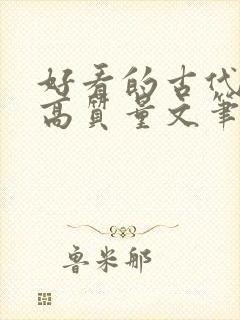 好看的古代
高质量文笔
鲁米那